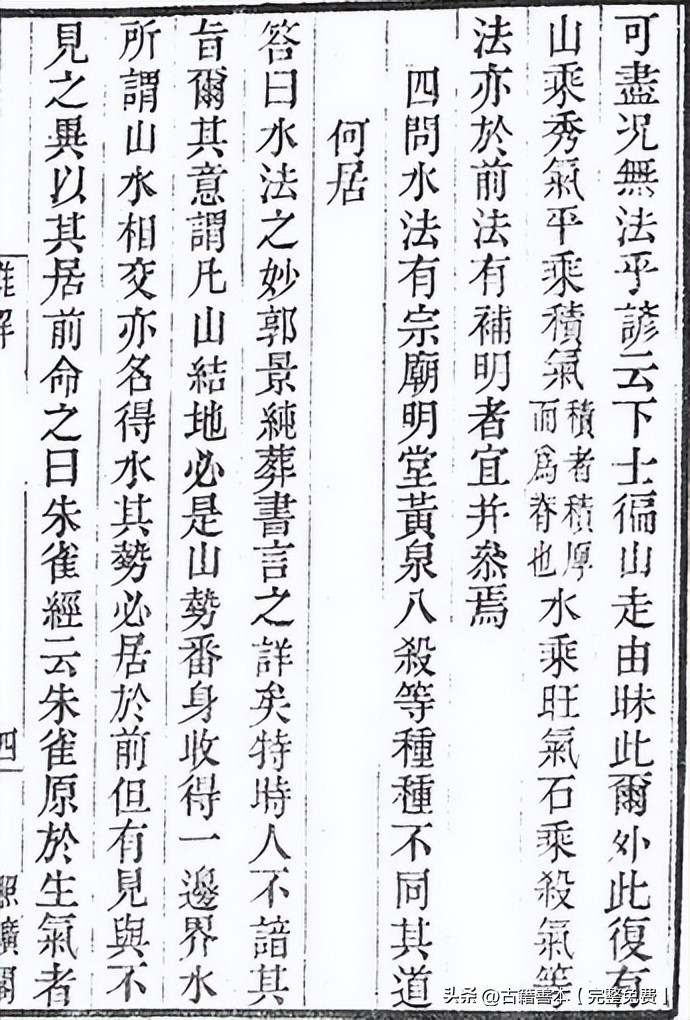 可盡况無法乎諺云下士徧山走由昧此爾外此復有
山乘秀氣平乘積氣積者積厚而爲脊也水乘旺氣石乘殺氣等
法亦於前法有補明者宜并叅焉
四問水法有宗廟明堂黃泉八殺等種種不同其道
何居
答曰水法之妙郭景純葬書言之詳矣特時人不諳其
旨爾其意謂凡山結地必是山勢番身收得一邊界水
所謂山水相交亦名得水其勢必居於前但有見與不
見之異以其居前命之曰朱雀經云朱雀原於生氣者
四
頭条 @古籍善本【完整免费】